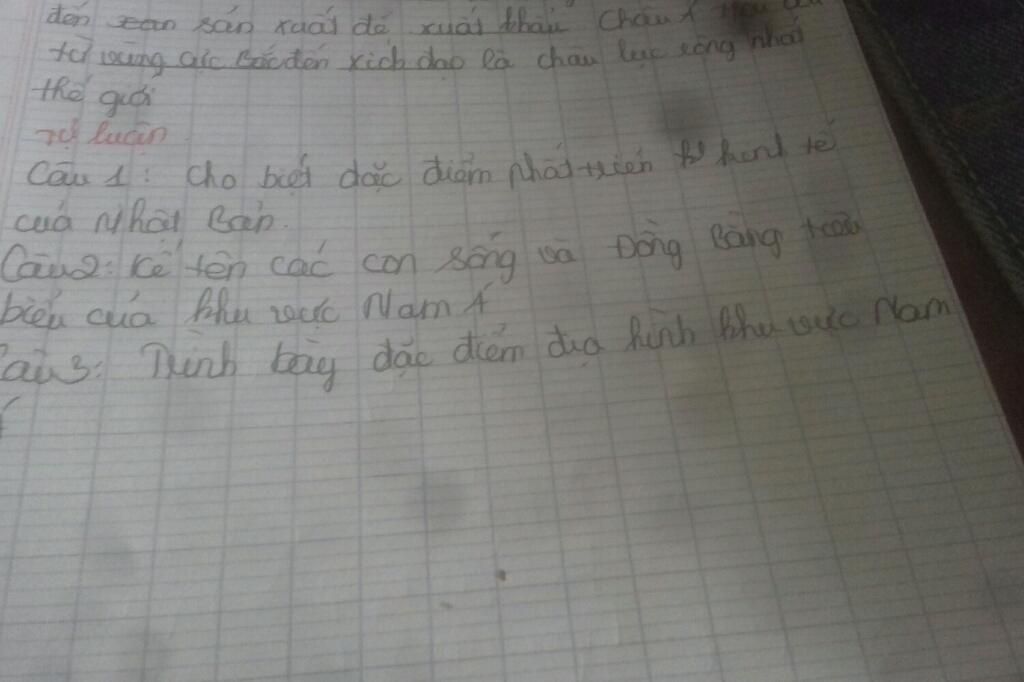 đến sản xuất để xuất khẩu Châu Á
từ vùng cực Bắc đến xích đạo là châu lục rộng nhất
thế giới
Tự luận
Câu 1: Cho biết đặc điểm phát triển kinh tế
của Nhật Bản.
Câu 2: Kể tên các con sông và Đồng Bằng tiêu
biểu của khu vực Nam Á
Câu 3: Trình bày đặc điểm địa hình khu vực Nam
Á